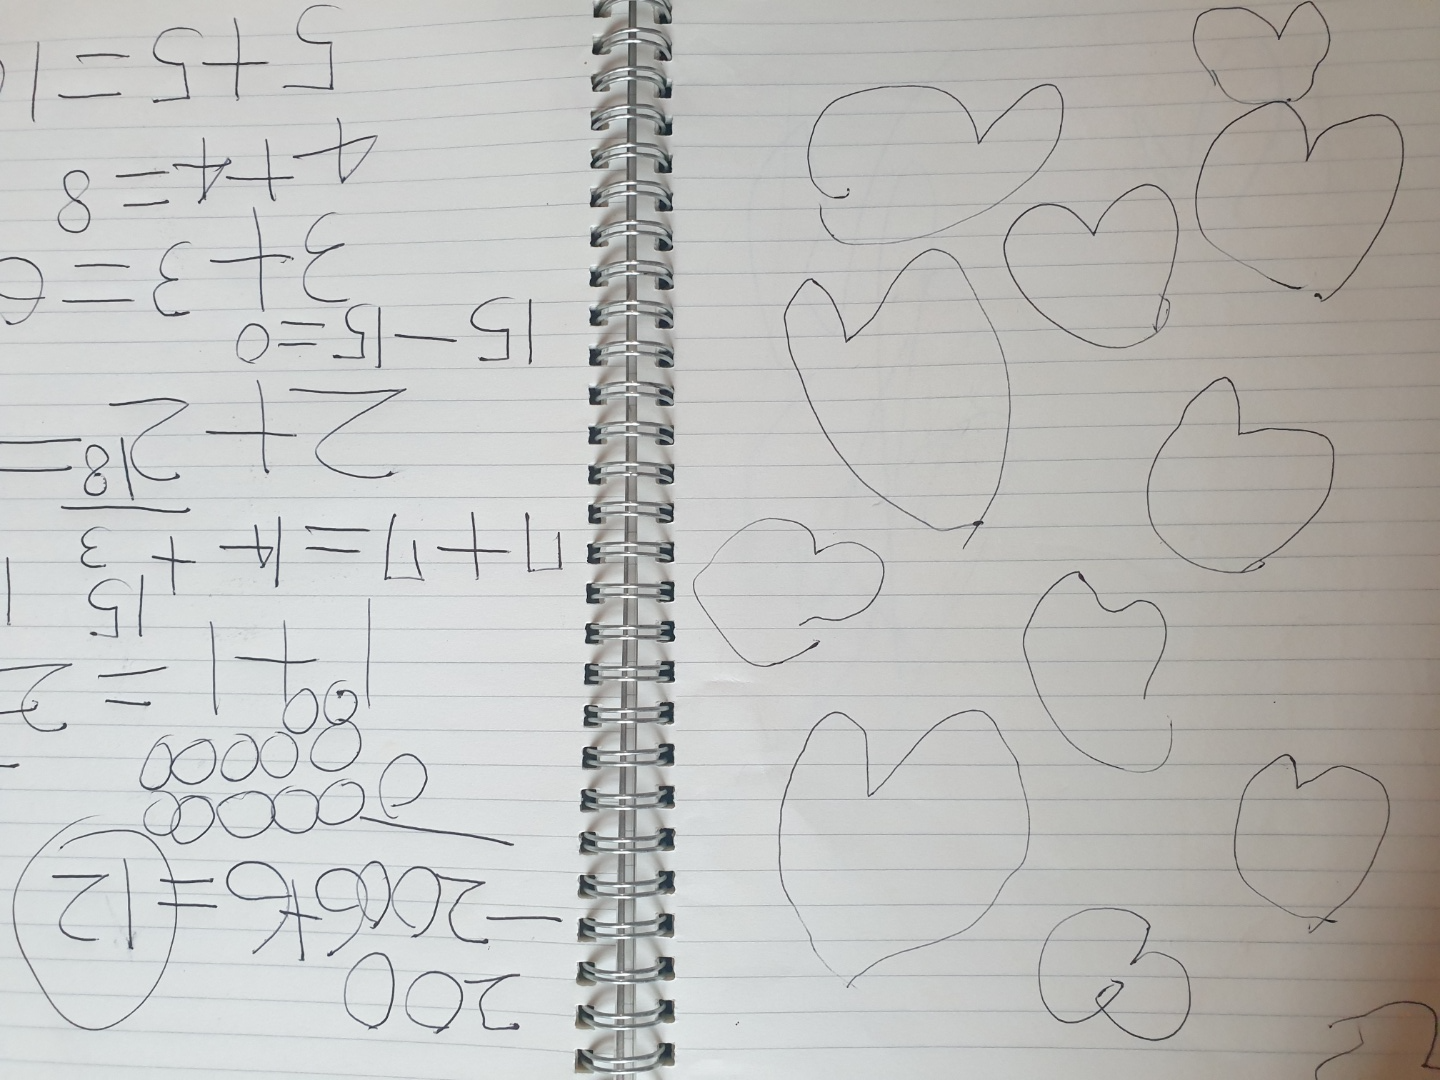 200
-200
6+6=12
0
1+1=2
15
+3
18
7+7=14
2+2=
15-15=0
3+3=6
4+4=8
5+5=10